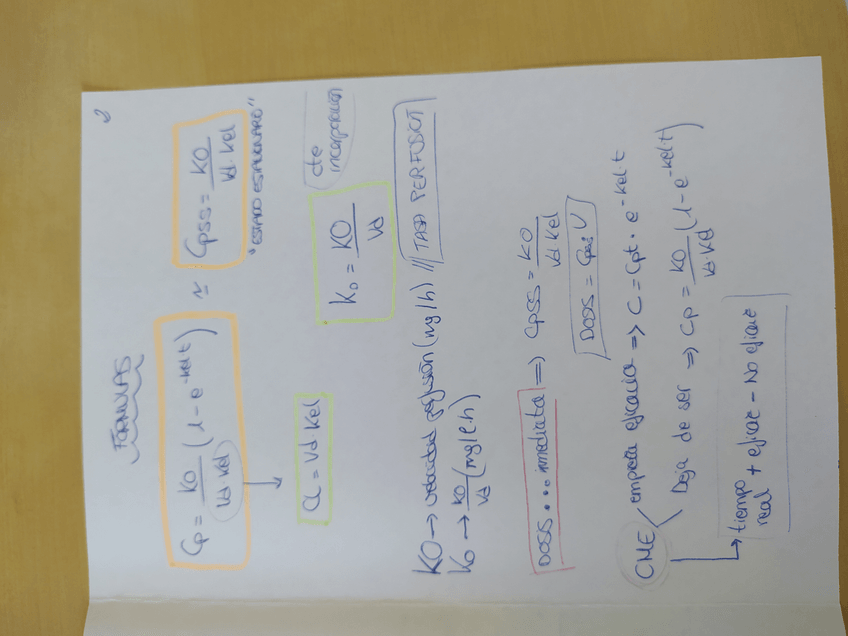 2
FORMULAS
Cp = KO / Vd Kel (1 - e^-kel·t) ≃ Cpss = KO / Vd · Kel
"ESTADO ESTACIONARIO"
Cl = Vd Kel
k₀ = KO / Vd
cte incorporación
KO → velocidad perfusión (mg/h) // TASA PERFUSIÓN
K₀ → KO / Vd (mg/l·h)
DOSS... inmediata => Cpss = KO / Vd Kel
DOSS = Cpss · V
CME
empieza eficacia => C = Cpt · e^-kel·t
Deja de ser => Cp = KO / Vd·Kel (1 - e^-kel·t)
↳ tiempo real + eficaz - No eficaz